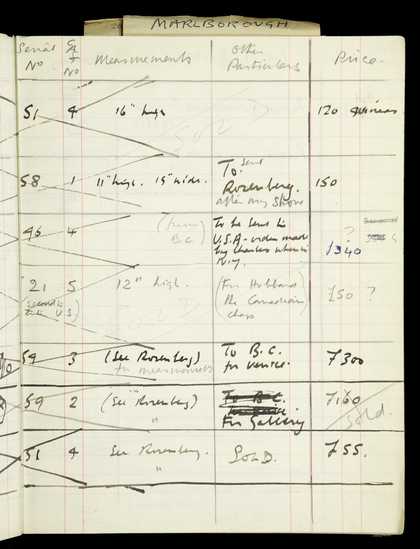 MARLBOROUGH
Serial No. Cast No Measurements Other Particulars Price.
51 4 16" high 120 guineas
58 1 11" high. 15" wide. To Rosenberg. sent 150
after my Show
46 4 (from B.C.) To be sent to
U.S.A. - order made
by Charles when in
N.Y. ? £340
21 5 12" high. (For Hubbard £50 ?
(second in the U.S) the Canadian
chap
59 3 (See Rosenberg) To B.C. £300
for measurements for Venice.
59 2 (See Rosenberg) To B.C. £160
" For Gallery Sold.
51 4 See Rosenberg. SOLD. £55.
"